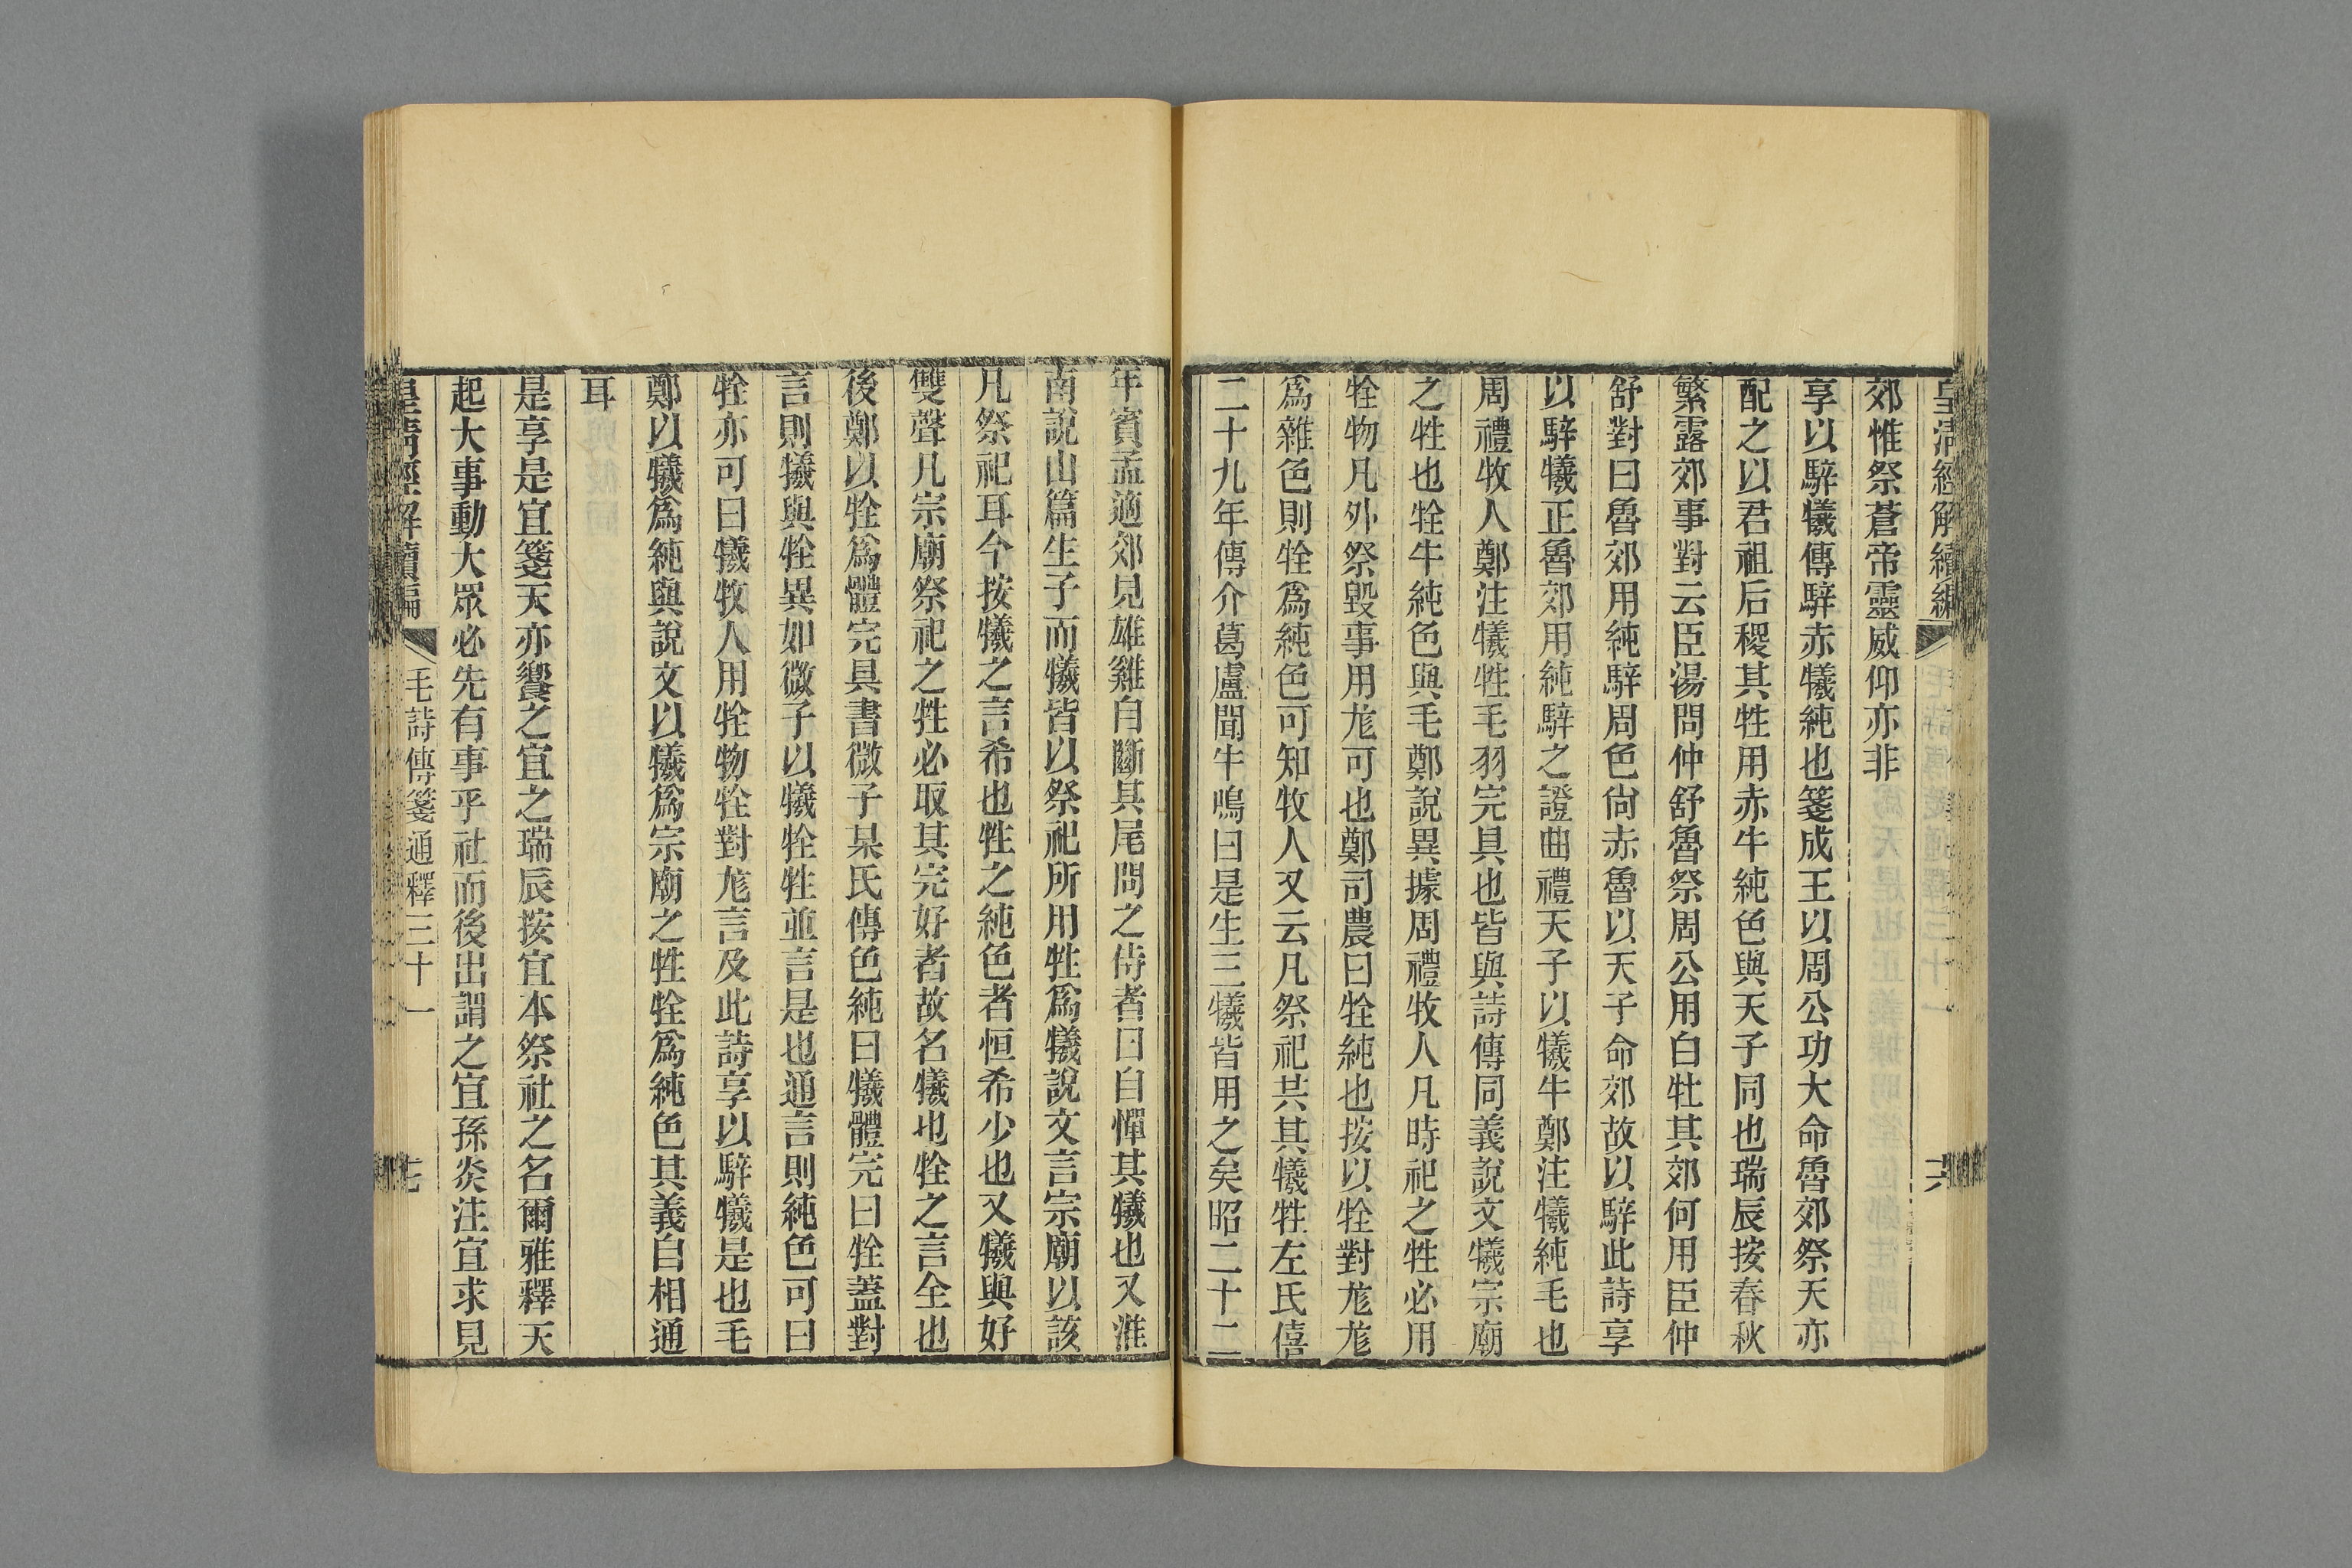 皇清經解續編
六
郊惟祭蒼帝靈威仰亦非
享以騂犧傳騂赤犧純也箋成王以周公功大命魯郊祭天亦
配之以君祖后稷其牲用赤牛純色與天子同也瑞辰按春秋
繁露郊事對云臣湯問仲舒魯祭周公用白牡其郊何用臣仲
舒對曰魯郊用純騂周色尙赤魯以天子命郊故以騂此詩享
以騂犧正魯郊用純騂之證曲禮天子以犧牛鄭注犧純毛也
周禮牧人鄭注犧牲毛羽完具也皆與詩傳同義說文犧宗廟
之牲也牷牛純色與毛鄭說異據周禮牧人凡時祀之牲必用
牷物凡外祭毀事用尨可也鄭司農曰牷純也按以牷對尨尨
爲雜色則牷爲純色可知牧人又云凡祭祀共其犧牲左氏僖
二十九年傳介葛盧聞牛鳴曰是生三犧皆用之矣昭二十二
年賓孟適郊見雄雞自斷其尾問之侍者曰自憚其犧也又淮
南說山篇生子而犧皆以祭祀所用牲爲犧說文言宗廟以該
凡祭祀耳今按犧之言希也牲之純色者恒希少也又犧與好
雙聲凡宗廟祭祀之牲必取其完好者故名犧也牷之言全也
後鄭以牷爲體完具書微子某氏傳色純曰犧體完曰牷蓋對
言則犧與牷異如微子以犧牷牲並言是也通言則純色可曰
牷亦可曰犧牧人用牷物牷對尨言及此詩享以騂犧是也毛
鄭以犧爲純與說文以犧爲宗廟之牲牷爲純色其義自相通
耳
是享是宜箋天亦饗之宜之瑞辰按宜本祭社之名爾雅釋天
起大事動大眾必先有事乎社而後出謂之宜孫炎注宜求見
皇清經解續編
毛詩傳箋通釋三十一
七